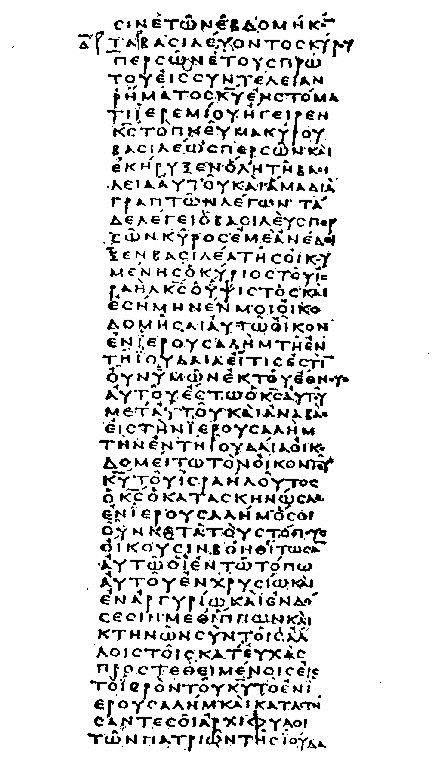 ϹΙΝΕΤΩΝΕΒΔΟΜΗΚΟ
ΤΑΒΑϹΙΛΕΥΟΝΤΟϹΚΥΡΟΥ
ΠΕΡϹΩΝΕΤΟΥϹΠΡΩ
ΤΟΥΕΙϹϹΥΝΤΕΛΕΙΑΝ
ΡΗΜΑΤΟϹΚ̅Υ̅ΕΝϹΤΟΜΑ
ΤΙΙΕΡΕΜΙΟΥΗΓΕΙΡΕΝ
Κ̅Ϲ̅ΤΟΠΝΕΥΜΑΚΥΡΟΥ
ΒΑϹΙΛΕΩϹΠΕΡϹΩΝΚΑΙ
ΕΚΗΡΥΞΕΝΟΛΗΤΗΒΑϹΙ
ΛΕΙΑΑΥΤΟΥΚΑΙΑΜΑΔΙΑ
ΓΡΑΠΤΩΝΛΕΓΩΝΤΑ
ΔΕΛΕΓΕΙΟΒΑϹΙΛΕΥϹΠΕΡ
ϹΩΝΚΥΡΟϹΕΜΕΑΝΕΔΕΙ
ΞΕΝΒΑϹΙΛΕΑΤΗϹΟΙΚΟΥ
ΜΕΝΗϹΟΚΥΡΙΟϹΤΟΥΙϹ
ΡΑΗΛΚ̅Ϲ̅ΟΥΨΙϹΤΟϹΚΑΙ
ΕϹΗΜΗΝΕΝΜΟΙΟΙΚΟ
ΔΟΜΗϹΑΙΑΥΤΩΟΙΚΟΝ
ΕΝΙΕΡΟΥϹΑΛΗΜΤΗΕΝ
ΤΗΙΟΥΔΑΙΑΕΙΤΙϹΕϹΤΙΝ
ΟΥΝΥΜΩΝΕΚΤΟΥΕΘΝΟΥϹ
ΑΥΤΟΥΕϹΤΩΟΚ̅Ϲ̅ΑΥΤΟΥ
ΜΕΤΑΥΤΟΥΚΑΙΑΝΑΒΑϹ
ΕΙϹΤΗΝΙΕΡΟΥϹΑΛΗΜ
ΤΗΝΕΝΤΗΙΟΥΔΑΙΑΟΙΚΟ
ΔΟΜΕΙΤΩΤΟΝΟΙΚΟΝΤΟΥ
Κ̅Υ̅ΤΟΥΙϹΡΑΗΛΟΥΤΟϹ
ΟΚ̅Ϲ̅ΟΚΑΤΑϹΚΗΝΩϹΑϹ
ΕΝΙΕΡΟΥϹΑΛΗΜΟϹΟΙ
ΟΥΝΚΑΤΑΤΟΥϹΤΟΠΟΥϹ
ΟΙΚΟΥϹΙΝΒΟΗΘΕΙΤΩϹΑΝ
ΑΥΤΩΟΙΕΝΤΩΤΟΠΩ
ΑΥΤΟΥΕΝΧΡΥϹΙΩΚΑΙ
ΕΝΑΡΓΥΡΙΩΚΑΙΕΝΔΟ
ϹΕϹΙΝΜΕΘΙΠΠΩΝΚΑΙ
ΚΤΗΝΩΝϹΥΝΤΟΙϹΑΛ
ΛΟΙϹΤΟΙϹΚΑΤΕΥΧΑϹ
ΠΡΟϹΤΕΘΕΙΜΕΝΟΙϹΕΙϹ
ΤΟΙΕΡΟΝΤΟΥΚ̅Υ̅ΤΟΕΝΙ
ΕΡΟΥϹΑΛΗΜΚΑΙΚΑΤΑϹΤΗ
ϹΑΝΤΕϹΟΙΑΡΧΙΦΥΛΟΙ
ΤΩΝΠΑΤΡΙΩΝΤΗϹΙΟΥΔΑ